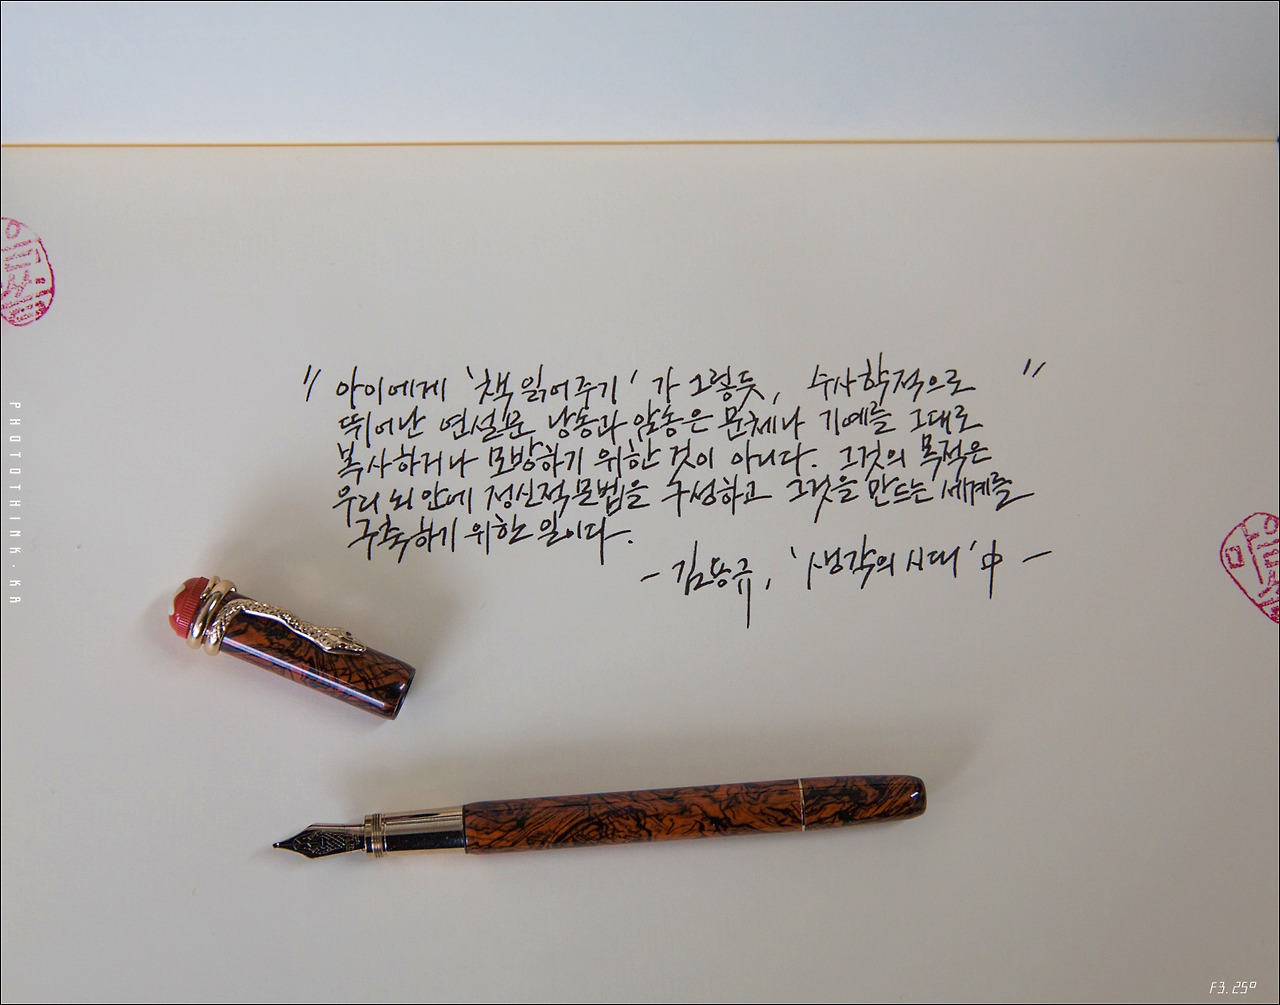 "아이에게 '책 읽어주기'가 그렇듯, 수사학적으로"
뛰어난 연설문 낭송과 암송은 문체나 기예를 그대로
복사하거나 모방하기 위한 것이 아니다. 그것의 목적은
우리 뇌 안에 정신적 문법을 구성하고 그것을 만드는 세계를
구축하기 위한 일이다.
- 김용규, '생각의 시대' 中 -
PHOTOTHINK·KA
F3.25º